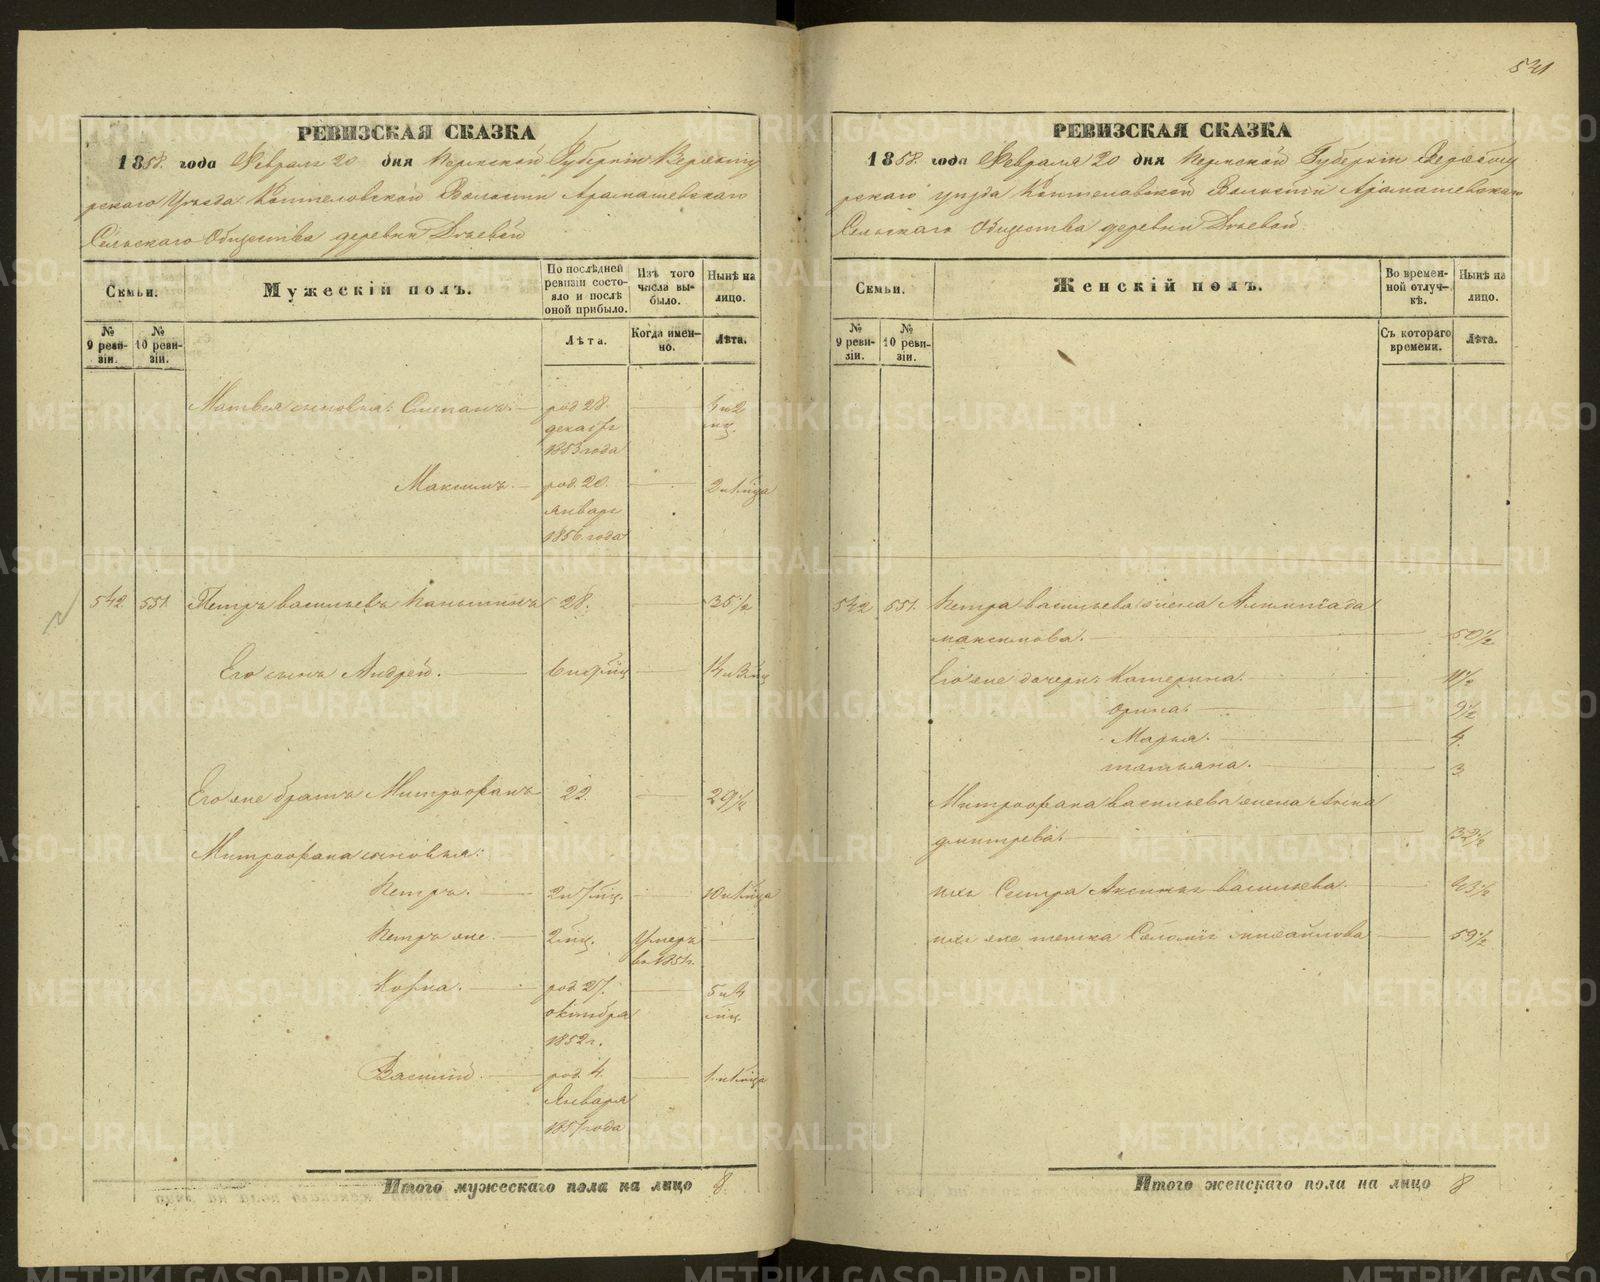 541
РЕВИЗСКАЯ СКАЗКА
1858. года Февраля 20 дня Пермской Губерніи Верхоту
рскаго Уѣзда Коптеловской Волости Арамашевскаго
Сельскаго Общества деревни Дѣевой
Семьи.
Мужескій полъ.
По послѣдней ревизіи состояло и послѣ оной прибыло.
Изъ того числа выбыло.
Нынѣ на лицо.
№ 9 ревизіи.
№ 10 ревизіи.
Лѣта.
Когда именно.
Лѣта.
Матвея сыновья: Степанъ. род 28. декабря 1853 года 4 и 2 мц.
Максимъ. род. 20. января 1856 года 2 и 1 м-ца
542 551. Петръ Васильевъ 28. 35 1/2
Его сынъ Андрей. 14 и 3 мц
Его же братъ Митрофанъ 22. 29 1/2
Митрофана сыновья:
Петръ. 2 и 7 мц. 10 и 1 м-ца
Петръ же. 2 мц. Умеръ въ 1851 г.
Корма. род. 27. октября 1852 г. 5 и 4 мц.
Василій. род. 4. Января 1857 года 1 и 1 м-ца
Итого мужескаго пола на лицо 8
РЕВИЗСКАЯ СКАЗКА
1858. года Февраля 20 дня Пермской Губерніи Верхоту
рскаго уезда Коптеловской Волости Арамашевскаго
Сельскаго Общества деревни Дѣевой.
Семьи.
Женскій полъ.
Во временной отлучкѣ.
Нынѣ на лицо.
№ 9 ревизіи.
№ 10 ревизіи.
Съ котораго времени.
Лѣта.
542 551. Петра Васильева жена Алимпіада
максимова. 50 1/2
Его же дочери: Катерина. 11 1/2
орина. 9 1/2
Марья. 4.
татьяна. 3
Митрофана Васильева жена Анна
дмитрева. 32 1/2
ихъ Сестра Аксинья Васильева. 43 1/2
ихъ же тетка Соломія михайлова 59 1/2
Итого женскаго пола на лицо 8
METRIKI.GASO-URAL.RU